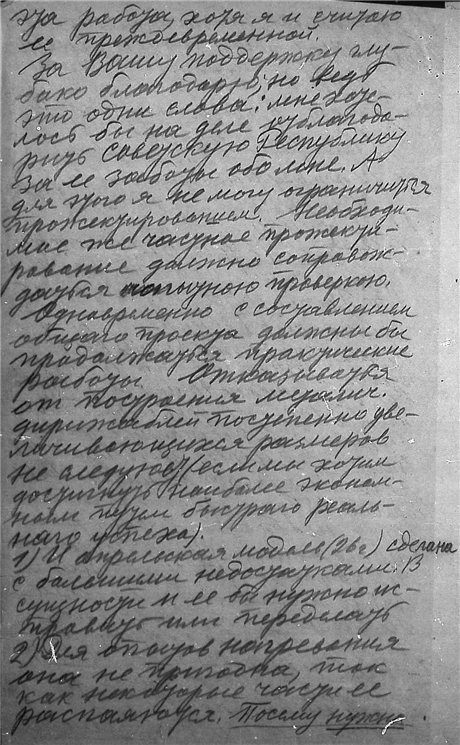 эта работа, хотя я и считаю
ее преждевременной.
За Вашу поддержку глу-
боко благодарю, но ведь
это одни слова: мне хоте-
лось бы на деле отблагода-
рить советскую Республику
за ее заботы обо мне. А
для этого я не могу ограничиться
прожектированием. Необходи-
мое же частное прожекти-
рование должно сопровож-
даться опытною проверкою.
Одновременно с составлением
общаго проекта должны бы
продолжаться практические
работы. Отказываться
от построения металич.
дирижаблей постепенно уве-
личивающихся размеров
не следует (если мы хотим
достигнуть наиболее эконом-
ным путем быстраго реаль-
наго успеха).
1) И апрельская модель (26 г) сделана
с большими недостатками. В
сущности и ее бы нужно ис-
править или переделать
2) Для опытов нагревания
она не пригодна, так
как некоторые части ее
распаяются. Посему нужно